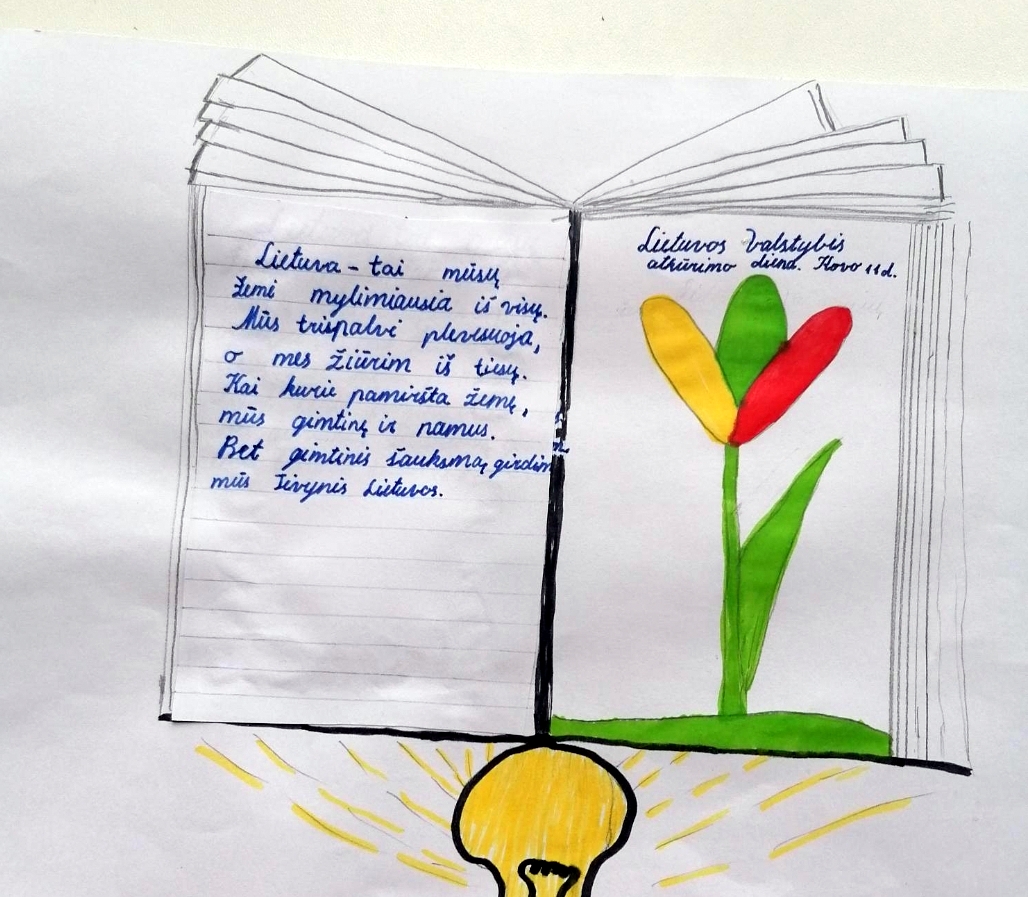 Lietuva - tai mūsų
žemė mylimiausia iš visų.
Mūs trispalvė plevėsuoja,
o mes žiūrim iš tiesų.
Kai kurie pamiršta žemę,
mūs gimtinę ir namus.
Bet gimtinės šauksmą girdim
mūs Tėvynės Lietuvos.
Lietuvos Valstybės
atkūrimo diena. Kovo 11 d.